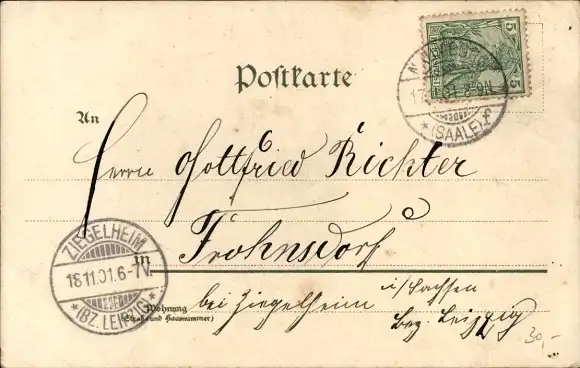 Postkarte
5
5
(SAALE) f
An
Herrn Gottfried Richter
ZIEGELHEIM
18.11.01.6-7V.
*(BZ. LEIPZIG)*
in Frohnsdorf
bei Ziegelheim i/Sachsen
Wohnung
(Straße und Hausnummer)
Bez. Leipzig
30,-